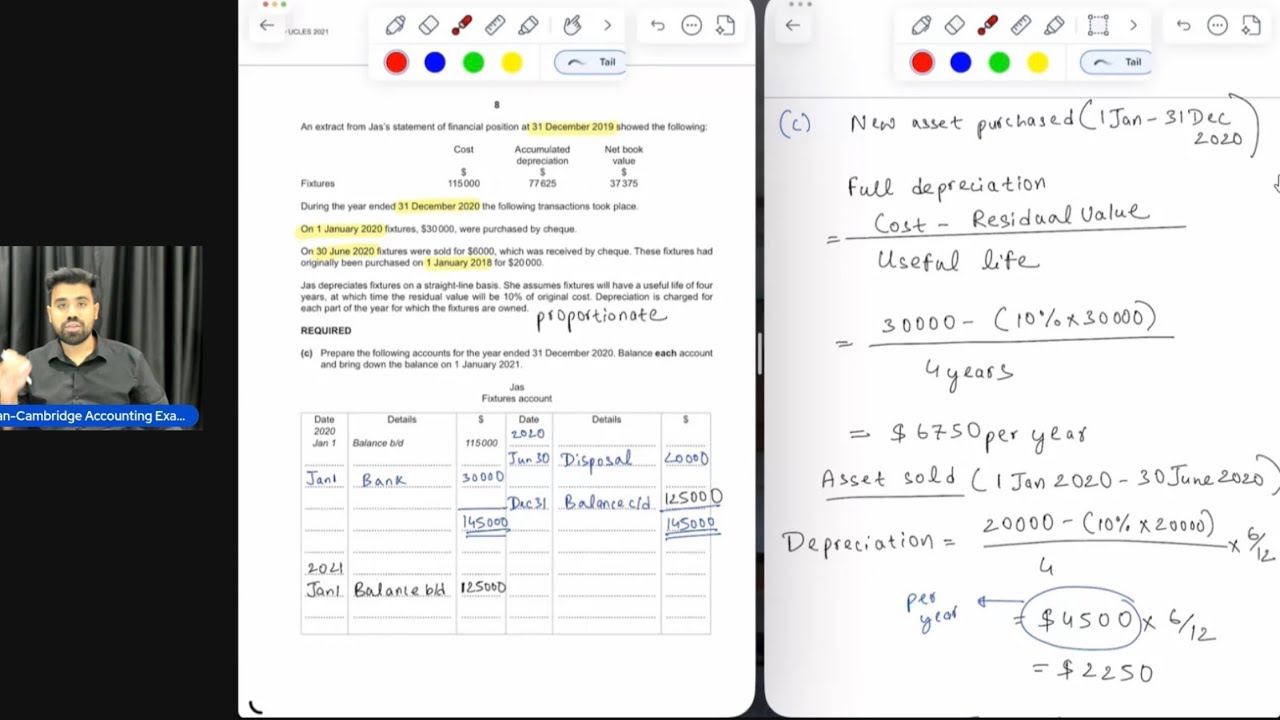 UCLES 2021
Tail
8
An extract from Jas's statement of financial position at 31 December 2019 showed the following:
Cost Accumulated depreciation Net book value
$ $ $
Fixtures 115000 77625 37375
During the year ended 31 December 2020 the following transactions took place.
On 1 January 2020 fixtures, $30000, were purchased by cheque.
On 30 June 2020 fixtures were sold for $6000, which was received by cheque. These fixtures had
originally been purchased on 1 January 2018 for $20000.
Jas depreciates fixtures on a straight-line basis. She assumes fixtures will have a useful life of four
years, at which time the residual value will be 10% of original cost. Depreciation is charged for
each part of the year for which the fixtures are owned. proportionate
REQUIRED
(c) Prepare the following accounts for the year ended 31 December 2020. Balance each account
and bring down the balance on 1 January 2021.
Jas
Fixtures account
Date Details $ Date Details $
2020 2020
Jan 1 Balance b/d 115000
Jun 30 Disposal 20000
Jan1 Bank 30000
Dec 31 Balance c/d 125000
145000 145000
2021
Jan1 Balance b/d 125000
an-Cambridge Accounting Exa...
Tail
(c) New asset purchased (1 Jan - 31 Dec
2020)
Full depreciation
= Cost - Residual Value
Useful life
= 30000 - (10% x 30000)
4 years
= $6750 per year
Asset sold (1 Jan 2020 - 30 June 2020)
Depreciation = 20000 - (10% x 20000) x 6/12
4
per year = $4500 x 6/12
= $2250